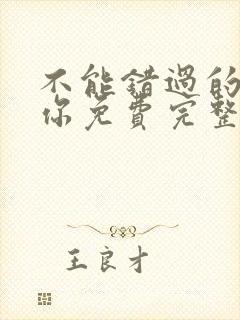 不能錯過的
你免費完整
王良才